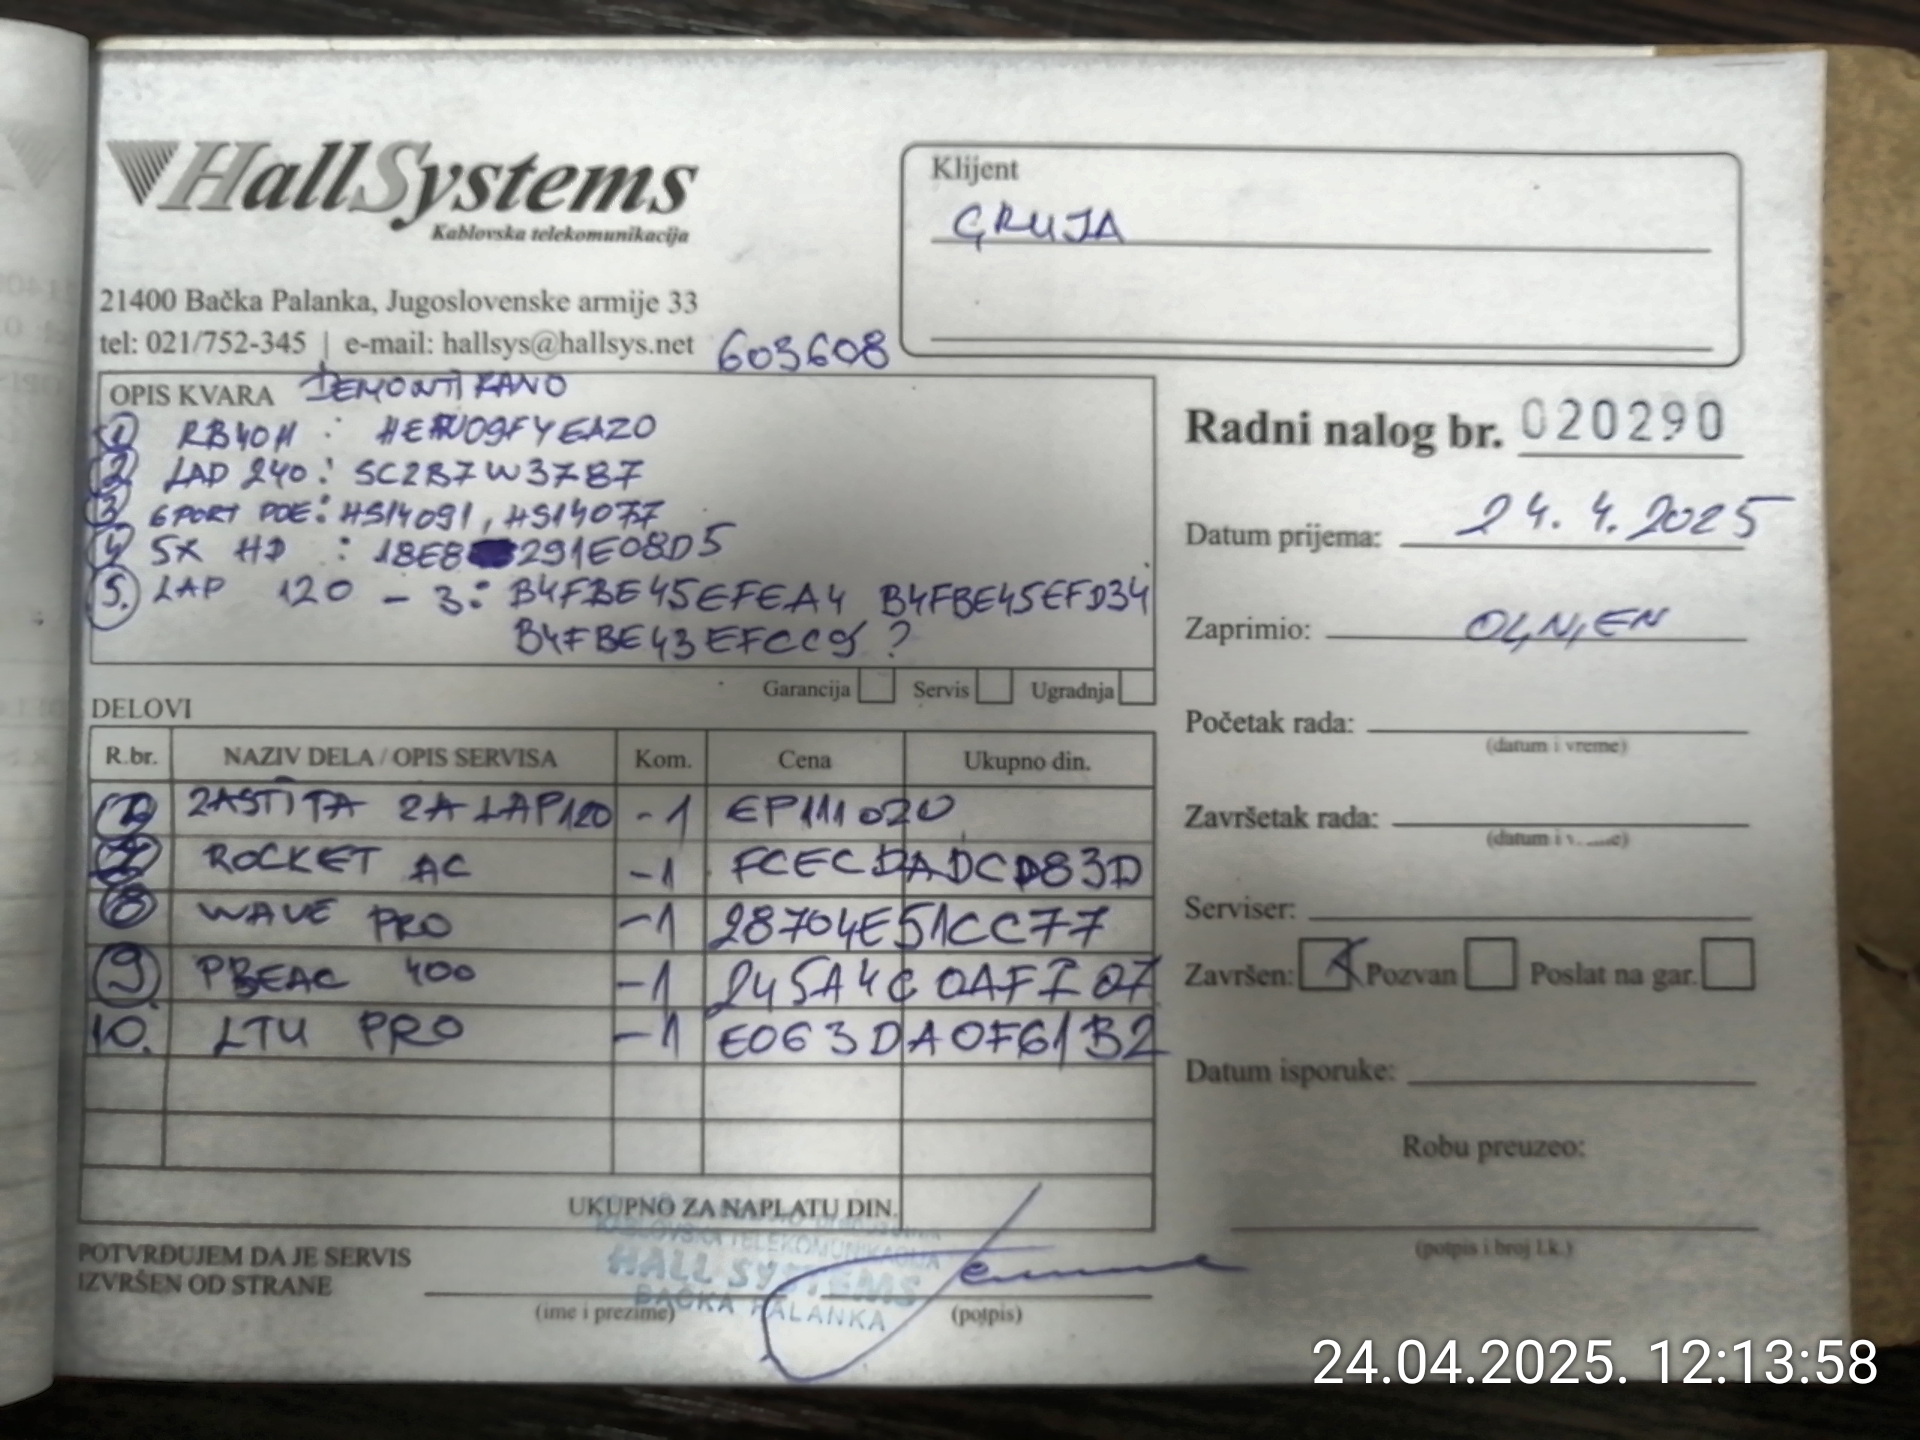 HallSystems
Kablovska telekomunikacija
21400 Bačka Palanka, Jugoslovenske armije 33
tel: 021/752-345 | e-mail: hallsys@hallsys.net 603608
Klijent
GRUJA
OPIS KVARA DEMONTIRANO
1 RB40H : HER09FYEAZ0
2 LAP 240: SC2B7W37B7
3 6PORT POE: HS14091, HS14077
4 SX HD : 18E8 291E08D5
5. LAP 120 - 3: B4FBE45EFEA4 B4FBE45EFD34
B4FBE43EFCC9 ?
Garancija Servis Ugradnja
Radni nalog br. 020290
Datum prijema: 24.4.2025
Zaprimio: OGNJEN
Početak rada:
(datum i vreme)
Završetak rada:
(datum i vreme)
Serviser:
Završen: X Pozvan Poslat na gar.
Datum isporuke:
Robu preuzeo:
(potpis i broj l.k.)
DELOVI
R.br. NAZIV DELA / OPIS SERVISA Kom. Cena Ukupno din.
ZASTITA ZA LAP120 -1 EP111020
ROCKET AC -1 FCECDADCD83D
8 WAVE PRO -1 28704E51CC77
9 PBEAC 400 -1 245A4C0AFF07
10. LTU PRO -1 E063DA0F61B2
UKUPNO ZA NAPLATU DIN.
POTVRĐUJEM DA JE SERVIS
IZVRŠEN OD STRANE
(ime i prezime) (potpis)
KABLOVSKA TELEKOMUNIKACIJA
HALL SYSTEMS
BAČKA PALANKA
24.04.2025. 12:13:58